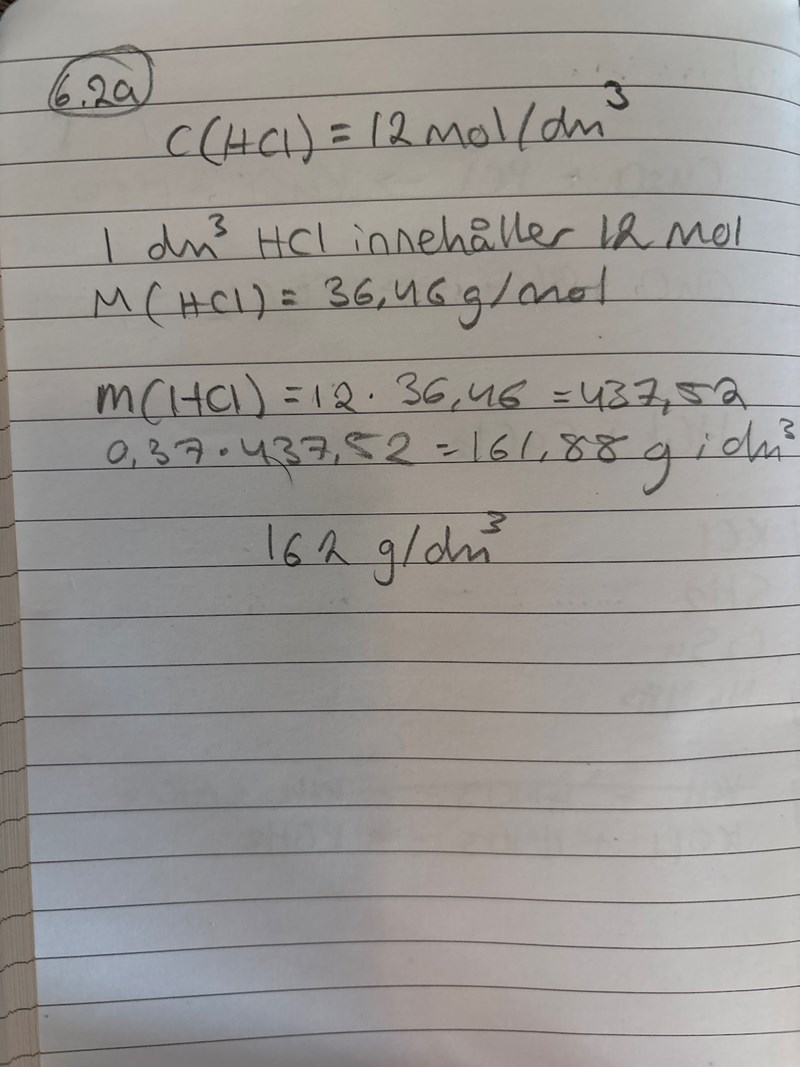 6.2a
C(HCl) = 12 mol/dm³
1 dm³ HCl innehåller 12 mol
M(HCl) = 36,46 g/mol
m(HCl) = 12 · 36,46 = 437,52
0,37 · 437,52 = 161,88 g i dm³
162 g/dm³